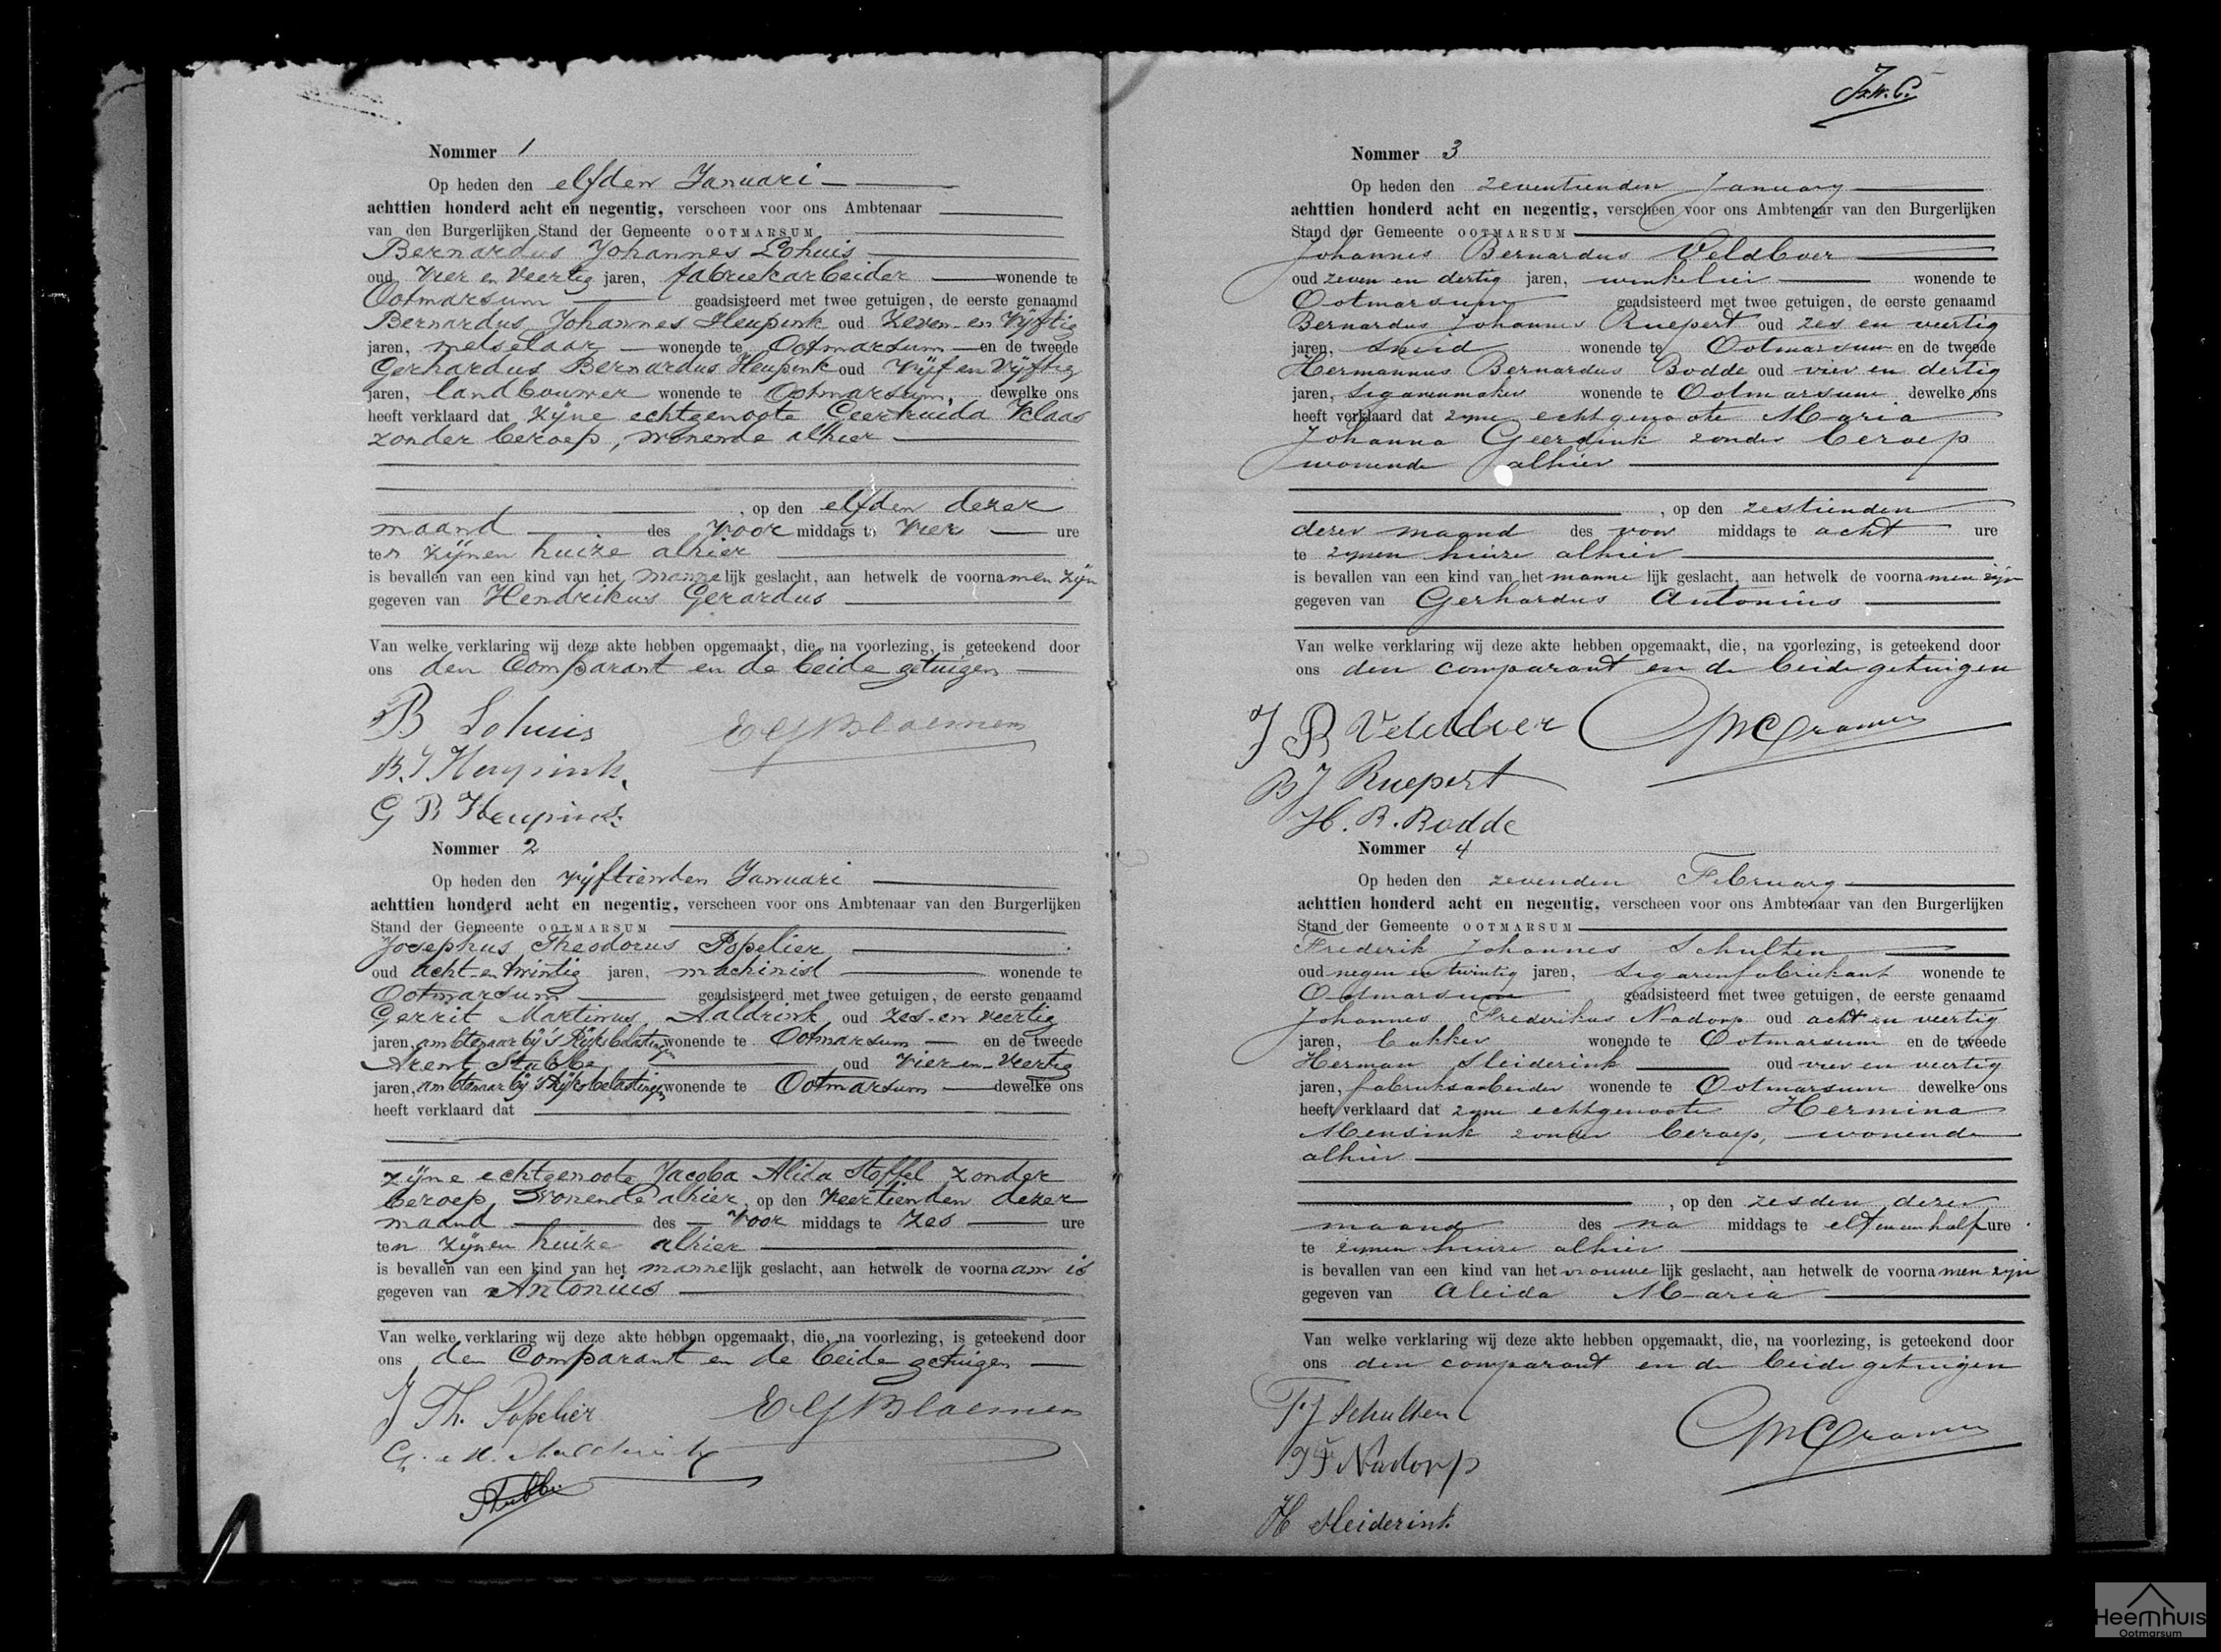 Nommer 1
Op heden den elfden Januari
achttien honderd acht en negentig, verscheen voor ons Ambtenaar
van den Burgerlijken Stand der Gemeente OOTMARSUM
Bernardus Johannes Lohuis
oud Vier en Veertig jaren, fabriekarbeider wonende te
Ootmarsum geadsisteerd met twee getuigen, de eerste genaamd
Bernardus Johannes Heupink oud Zeven en Vijftig
jaren, metselaar wonende te Ootmarsum en de tweede
Gerhardus Bernardus Heupink oud Vijf en Vijftig
jaren, landbouwer wonende te Ootmarsum, dewelke ons
heeft verklaard dat zijne echtgenoote Geertruida Klaas
zonder beroep, wonende alhier
, op den elfden dezer
maand des Voor middags te Vier ure
ten zijnen huize alhier
is bevallen van een kind van het mannelijk geslacht, aan hetwelk de voornamen zijn
gegeven van Hendrikus Gerardus
Van welke verklaring wij deze akte hebben opgemaakt, die, na voorlezing, is geteekend door
ons den Comparant en de beide getuigen
B Lohuis
B.J Heupink
G B Heupink
Nommer 2
Op heden den vijftienden Januari
achttien honderd acht en negentig, verscheen voor ons Ambtenaar van den Burgerlijken
Stand der Gemeente OOTMARSUM
Josephus Theodorus Popelier
oud acht en twintig jaren, machinist wonende te
Ootmarsum geadsisteerd met twee getuigen, de eerste genaamd
Gerrit Martinus Aaldrink oud zes en veertig
jaren, ambtenaar bij 's Rijks belastingen wonende te Ootmarsum en de tweede
Arent Stubbe oud Vier en Veertig
jaren, ambtenaar bij 's Rijks belastingen wonende te Ootmarsum dewelke ons
heeft verklaard dat
zijne echtgenoote Jacoba Alida Stoffel zonder
beroep, wonende alhier, op den Veertienden dezer
maand des Voor middags te Zes ure
ten zijnen huize alhier
is bevallen van een kind van het mannelijk geslacht, aan hetwelk de voornaam is
gegeven van Antonius
Van welke verklaring wij deze akte hebben opgemaakt, die, na voorlezing, is geteekend door
ons den Comparant en de beide getuigen
J Th. Popelier
Stubbe
Nommer 3
Op heden den zeventienden January
achttien honderd acht en negentig, verscheen voor ons Ambtenaar van den Burgerlijken
Stand der Gemeente OOTMARSUM
Johannes Bernardus Veldboer
oud zeven en dertig jaren, winkelier wonende te
Ootmarsum geadsisteerd met twee getuigen, de eerste genaamd
Bernardus Johannes Ruepert oud zes en veertig
jaren, smid wonende te Ootmarsum en de tweede
Hermannus Bernardus Bodde oud vier en dertig
jaren, sigarenmaker wonende te Ootmarsum dewelke ons
heeft verklaard dat zijne echtgenoote Maria
Johanna Geerdink zonder beroep
wonende alhier
, op den zestienden
dezer maand des voor middags te acht ure
te zijnen huize alhier
is bevallen van een kind van het mannelijk geslacht, aan hetwelk de voornamen zijn
gegeven van Gerhardus Antonius
Van welke verklaring wij deze akte hebben opgemaakt, die, na voorlezing, is geteekend door
ons den comparant en de beide getuigen
J B Veldboer
B J Ruepert
H. B. Bodde
Nommer 4
Op heden den zevenden February
achttien honderd acht en negentig, verscheen voor ons Ambtenaar van den Burgerlijken
Stand der Gemeente OOTMARSUM
Frederik Johannes Schulten
oud negen en twintig jaren, sigarenfabriekant wonende te
Ootmarsum geadsisteerd met twee getuigen, de eerste genaamd
Johannes Frederikus Nadorp oud acht en veertig
jaren, bakker wonende te Ootmarsum en de tweede
Herman Sleiderink oud vier en veertig
jaren, fabrieksarbeider wonende te Ootmarsum dewelke ons
heeft verklaard dat zijne echtgenoote Hermina
Mensink zonder beroep, wonende
alhier
, op den zesden dezer
maand des na middags te elf en een half ure
te zijnen huize alhier
is bevallen van een kind van het vrouwelijk geslacht, aan hetwelk de voornamen zijn
gegeven van Aleida Maria
Van welke verklaring wij deze akte hebben opgemaakt, die, na voorlezing, is geteekend door
ons den comparant en de beide getuigen
F J Schulten
J F Nadorp
H Sleiderink
Heemhuis
Ootmarsum